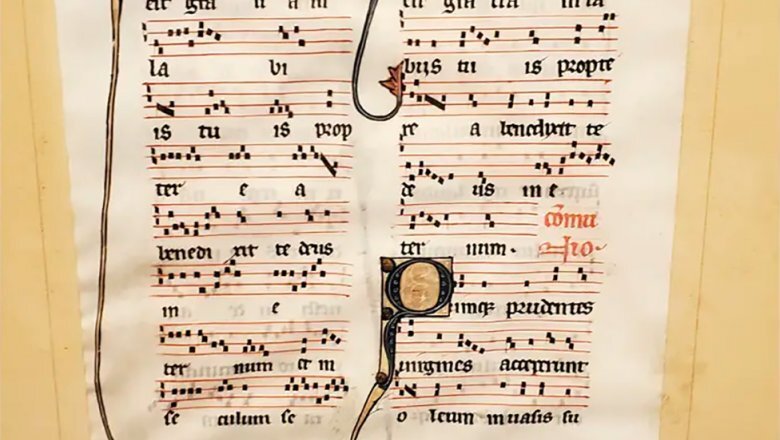 la bi
is tu is prop
ter e a
benedi xit te deus
in e
ter num et in
se culum se
bijs tu is propte
re a benedixit te
de us in e
cōmu
ter num.
nio.
Quinqȝ prudentes
uirgines acceperunt
oleum in uasis su